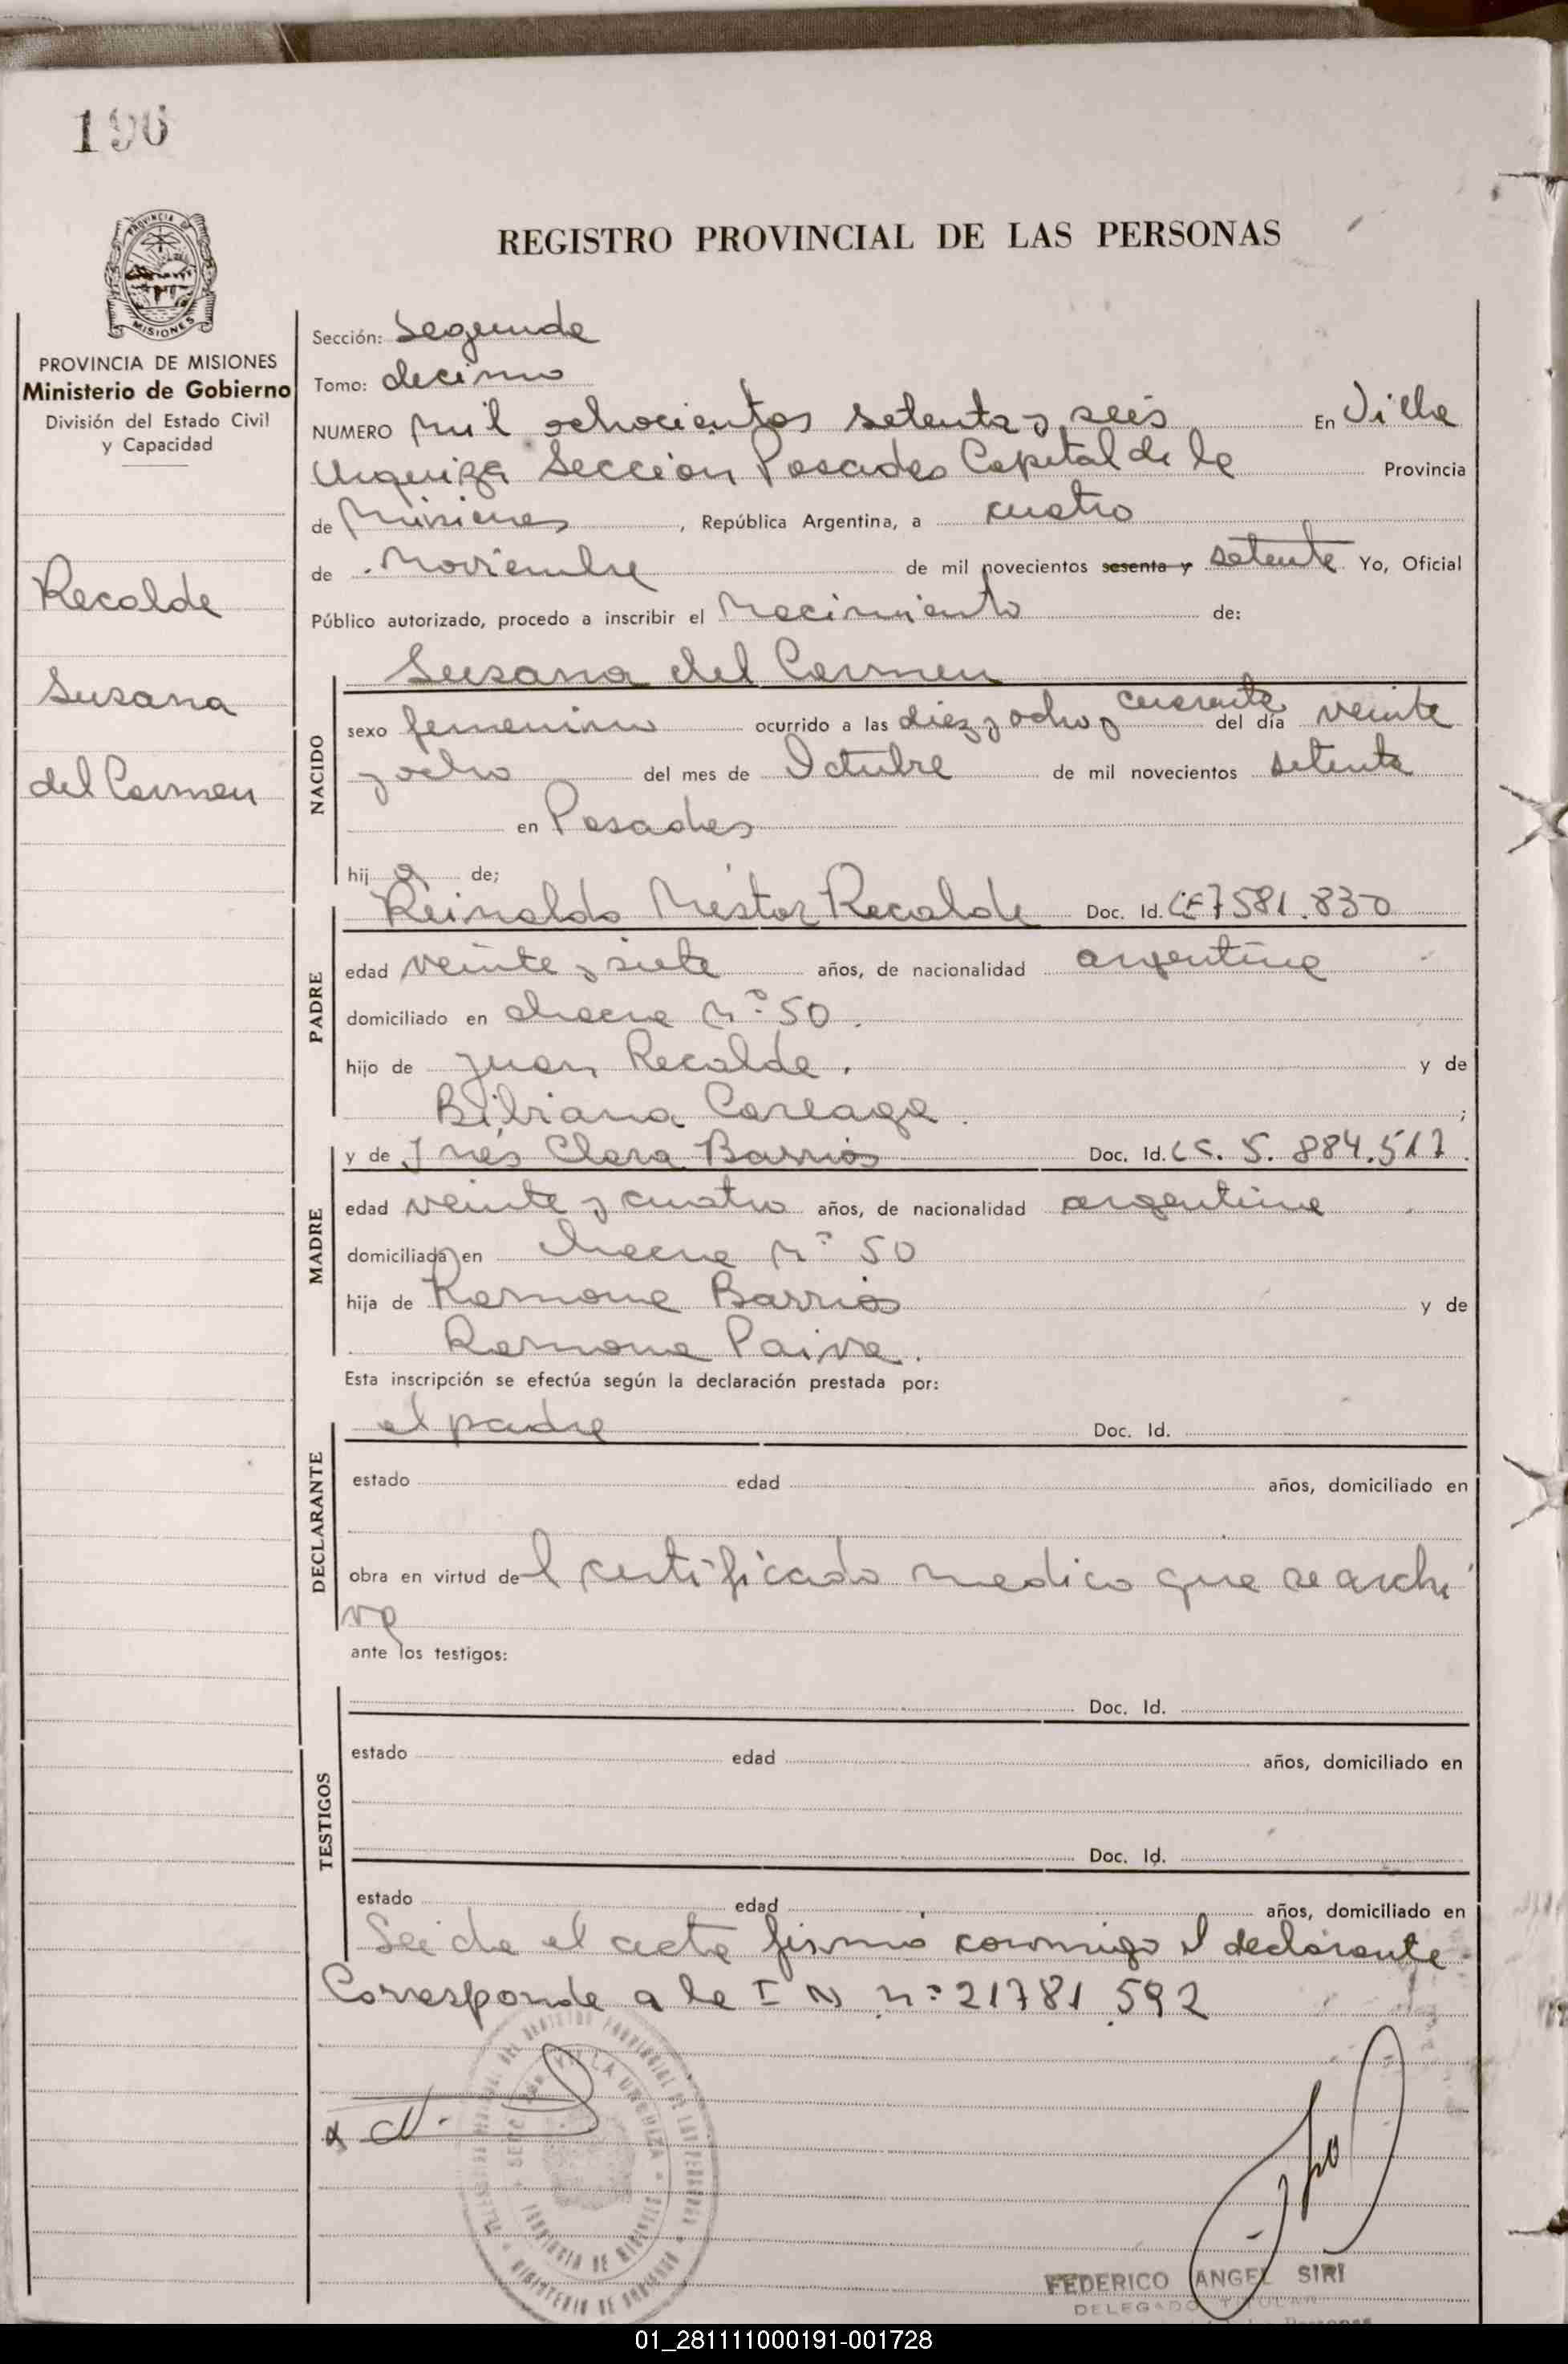 196
PROVINCIA DE MISIONES
PROVINCIA DE MISIONES
Ministerio de Gobierno
División del Estado Civil
y Capacidad
Recalde
Susana
del Carmen
REGISTRO PROVINCIAL DE LAS PERSONAS
Sección: Segunda
Tomo: decimo
NUMERO Mil ochocientos setenta y seis En Villa
Urquiza Sección Posadas Capital de la Provincia
de Misiones, República Argentina, a cuatro
de Noviembre de mil novecientos sesenta y setenta Yo, Oficial
Público autorizado, procedo a inscribir el Nacimiento de:
NACIDO
Susana del Carmen
sexo femenino ocurrido a las diez y ocho y cuarenta del día veinte
y ocho del mes de Octubre de mil novecientos setenta
en Posadas
hij a de;
PADRE
Reinaldo Nestor Recalde Doc. Id. 7581.830
edad veinte y siete años, de nacionalidad argentina
domiciliado en chacra Nº 50.
hijo de Juan Recalde. y de
Bibiana Careaga. ;
MADRE
y de Inés Clara Barrios Doc. Id. LC. 5. 884.517.
edad veinte y cuatro años, de nacionalidad argentina
domiciliada en chacra Nº 50
hija de Ramona Barrios y de
Ramona Paiva.
Esta inscripción se efectúa según la declaración prestada por:
DECLARANTE
el padre Doc. Id.
estado edad años, domiciliado en
obra en virtud del certificado medico que se archi
va
ante los testigos:
TESTIGOS
Doc. Id.
estado edad años, domiciliado en
Doc. Id.
estado edad años, domiciliado en
Leida el acta firmó conmigo el declarante
Corresponde a la I N nº 21781.592
VILLA URQUIZA
PROVINCIA DE MISIONES
MINISTERIO DE GOBIERNO
FEDERICO ANGEL SIRI
DELEGADO TITULAR
01_281111000191-001728